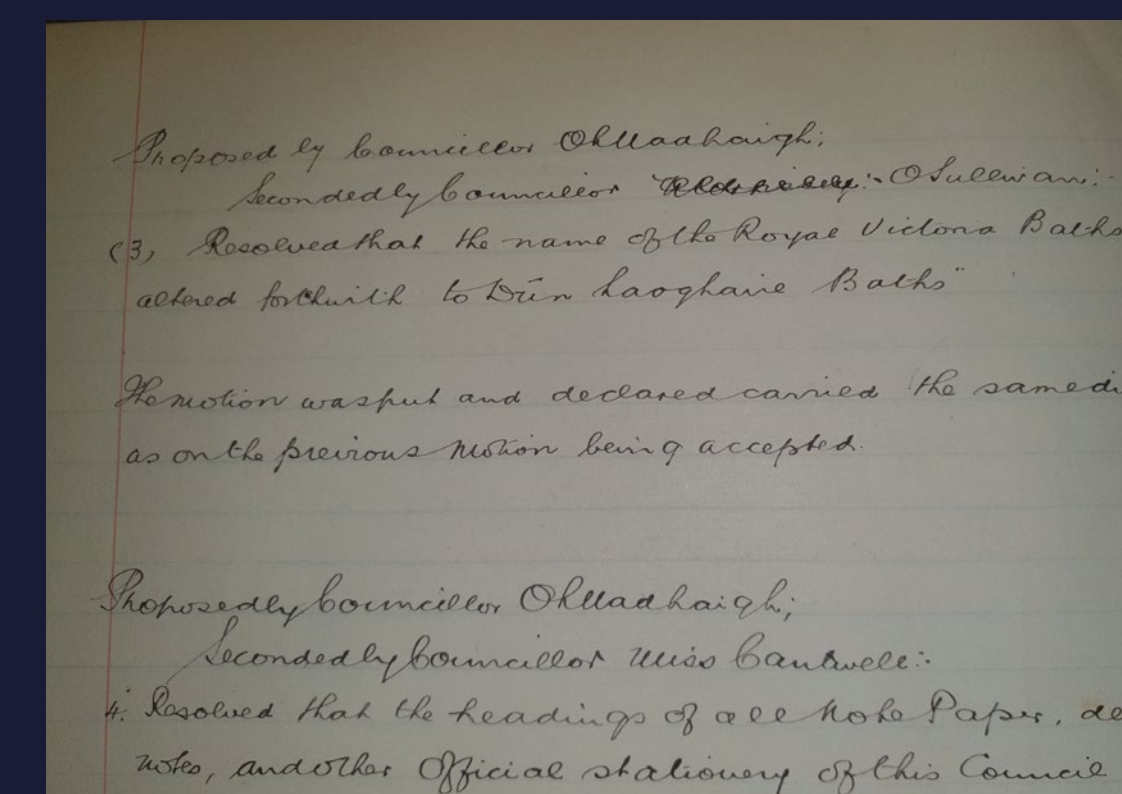 Proposed by Councillor OhUadhaigh;
Seconded by Councillor :- O Sullivan:-
(3) Resolved that the name of the Royal Victoria Baths
altered forthwith to Dún Laoghaire Baths"
The motion was put and declared carried the same di
as on the previous motion being accepted.
Proposed by Councillor OhUadhaigh;
Seconded by Councillor Miss Cantwell:-
4. Resolved that the headings of all Note Paper, de
notes, and other Official stationery of this Council